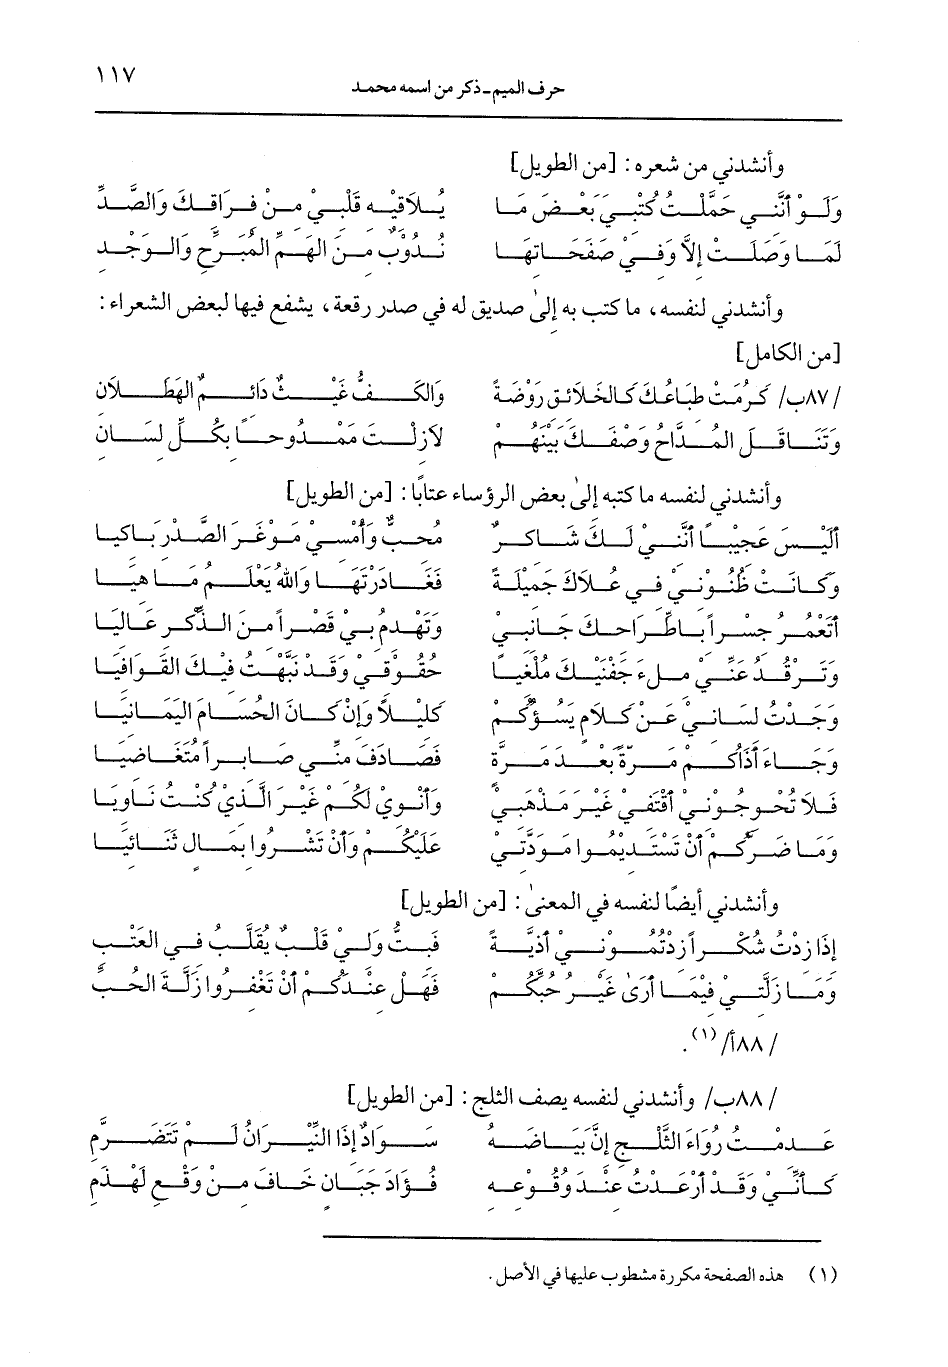 حرف الميم ـ ذكر من اسمه محمد ١١٧
وأنشدني من شعره: [من الطويل]
وَلَوْ أَنَّنِي حَمَّلْتُ كُتْبِيَ بَعْضَ مَا يُلاَقِيْهِ قَلْبِيْ مِنْ فِرَاقِكَ وَالصَّدِّ
لَمَا وَصَلَتْ إِلاَّ وَفِيْ صَفَحَاتِهَا نُدُوْبٌ مِنَ الهَمِّ المُبَرِّحِ وَالوَجْدِ
وأنشدني لنفسه، ما كتب به إلىٰ صديق له في صدر رقعة، يشفع فيها لبعض الشعراء:
[من الكامل]
/٨٧ب/ كَرُمَتْ طِبَاعُكَ كَالخَلاَئِقِ رَوْضَةً وَالكَفُّ غَيْثٌ دَائِمُ الهَطَلاَنِ
وَتَنَاقَلَ المُدَّاحُ وَصْفَكَ بَيْنَهُمْ لاَزِلْتَ مَمْدُوحاً بِكُلِّ لِسَانِ
وأنشدني لنفسه ما كتبه إلىٰ بعض الرؤساء عتابًا: [من الطويل]
أَلَيْسَ عَجِيْباً أَنَّنِيْ لَكَ شَاكِرٌ مُحِبٌّ وَأُمْسِيْ مُوْغَرَ الصَّدْرِ بَاكِيَا
وَكَانَتْ ظُنُوْنِيْ فِي عُلاَكَ جَمِيْلَةً فَغَادَرْتَهَا وَاللهُ يَعْلَمُ مَا هِيَا
أَتَعْمُرُ جِسْراً بِاطِّرَاحِكَ جَانِبِيْ وَتَهْدِمُ بِيْ قَصْراً مِنَ الذِّكْرِ عَالِيَا
وَتَرْقُدُ عَنِّيْ مِلءَ جَفْنَيْكَ مُلْغِياً حُقُوْقِيْ وَقَدْ نَبَّهْتُ فِيْكَ القَوَافِيَا
وَجَدْتُ لِسَانِيْ عَنْ كَلاَمٍ يَسُؤْكُمِ كَلِيْلاً وَإِنْ كَانَ الحُسَامَ اليَمَانِيَا
وَجَاءَ أَذَاكُمْ مَرَّةً بَعْدَ مَرَّةٍ فَصَادَفَ مِنِّي صَابِراً مُتَغَاضِيَا
فَلاَ تُحْوِجُونِيْ أَقْتَفِيْ غَيْرَ مَذْهَبِيْ وَأَنْوِيْ لَكُمْ غَيْرَ الَّذِيْ كُنْتُ نَاوِيَا
وَمَا ضَرَّكُمْ أَنْ تَسْتَدِيْمُوا مَوَدَّتِي عَلَيْكُمْ وَأَنْ تَشْرُوا بِمَالٍ ثَنَائِيَا
وأنشدني أيضًا لنفسه في المعنىٰ: [من الطويل]
إِذَا زِدْتُ شُكْراً زِدْتُمُونِيْ أَذِيَّةً فَبِتُّ وَلِيْ قَلْبٌ يُقَلَّبُ فِي العَتْبِ
وَمَا زَلَّتِيْ فِيْمَا أَرَىٰ غَيْرُ حُبِّكُمْ فَهَلْ عِنْدَكُمْ أَنْ تَغْفِرُوا زَلَّةَ الحُبِّ
/٨٨أ/(١).
/٨٨ب/ وأنشدني لنفسه يصف الثلج: [من الطويل]
عَدِمْتُ رُوَاءَ الثَّلْجِ إِنَّ بَيَاضَهُ سَوَادٌ إِذَا النِّيْرَانُ لَمْ تَتَضَرَّمِ
كَأَنِّيْ وَقَدْ أُرْعِدْتُ عِنْدَ وُقُوْعِهِ فُؤَادُ جَبَانٍ خَافَ مِنْ وَقْعِ لَهْذَمِ
(١) هذه الصفحة مكررة مشطوب عليها في الأصل.